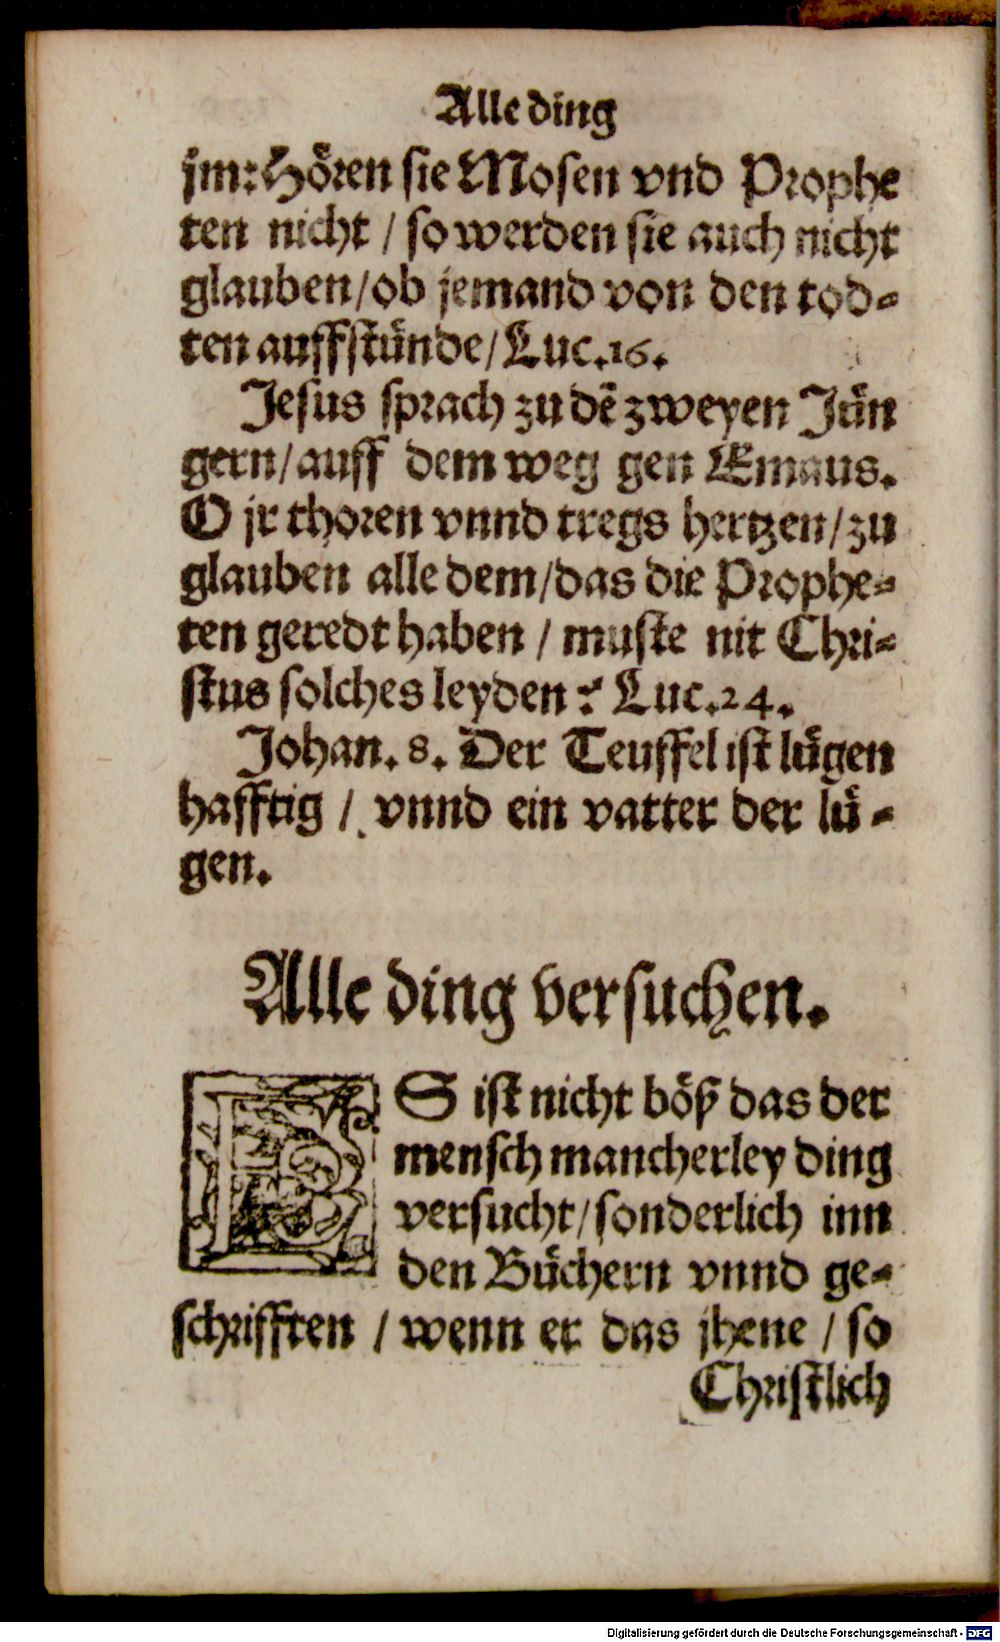 Alle ding
jm: Hoͤren sie Mosen vnd Prophe
ten nicht / so werden sie auch nicht
glauben / ob jemand von den tod-
ten auffstuͤnde / Luc. 16.
Jesus sprach zu dē zweyen Juͤn
gern / auff dem weg gen Emaus.
O jr thoren vnnd tregs hertzen / zu
glauben alle dem / das die Prophe-
ten geredt haben / muste nit Chri-
stus solches leyden? Luc. 24.
Johan. 8. Der Teuffel ist luͤgen
hafftig / vnnd ein vatter der luͤ-
gen.
Alle ding versuchen.
ES ist nicht boͤß das der
mensch mancherley ding
versucht / sonderlich inn
den Buͤchern vnnd ge-
schrifften / wenn er das jhene / so
Christlich
Digitalisierung gefördert durch die Deutsche Forschungsgemeinschaft - DFG